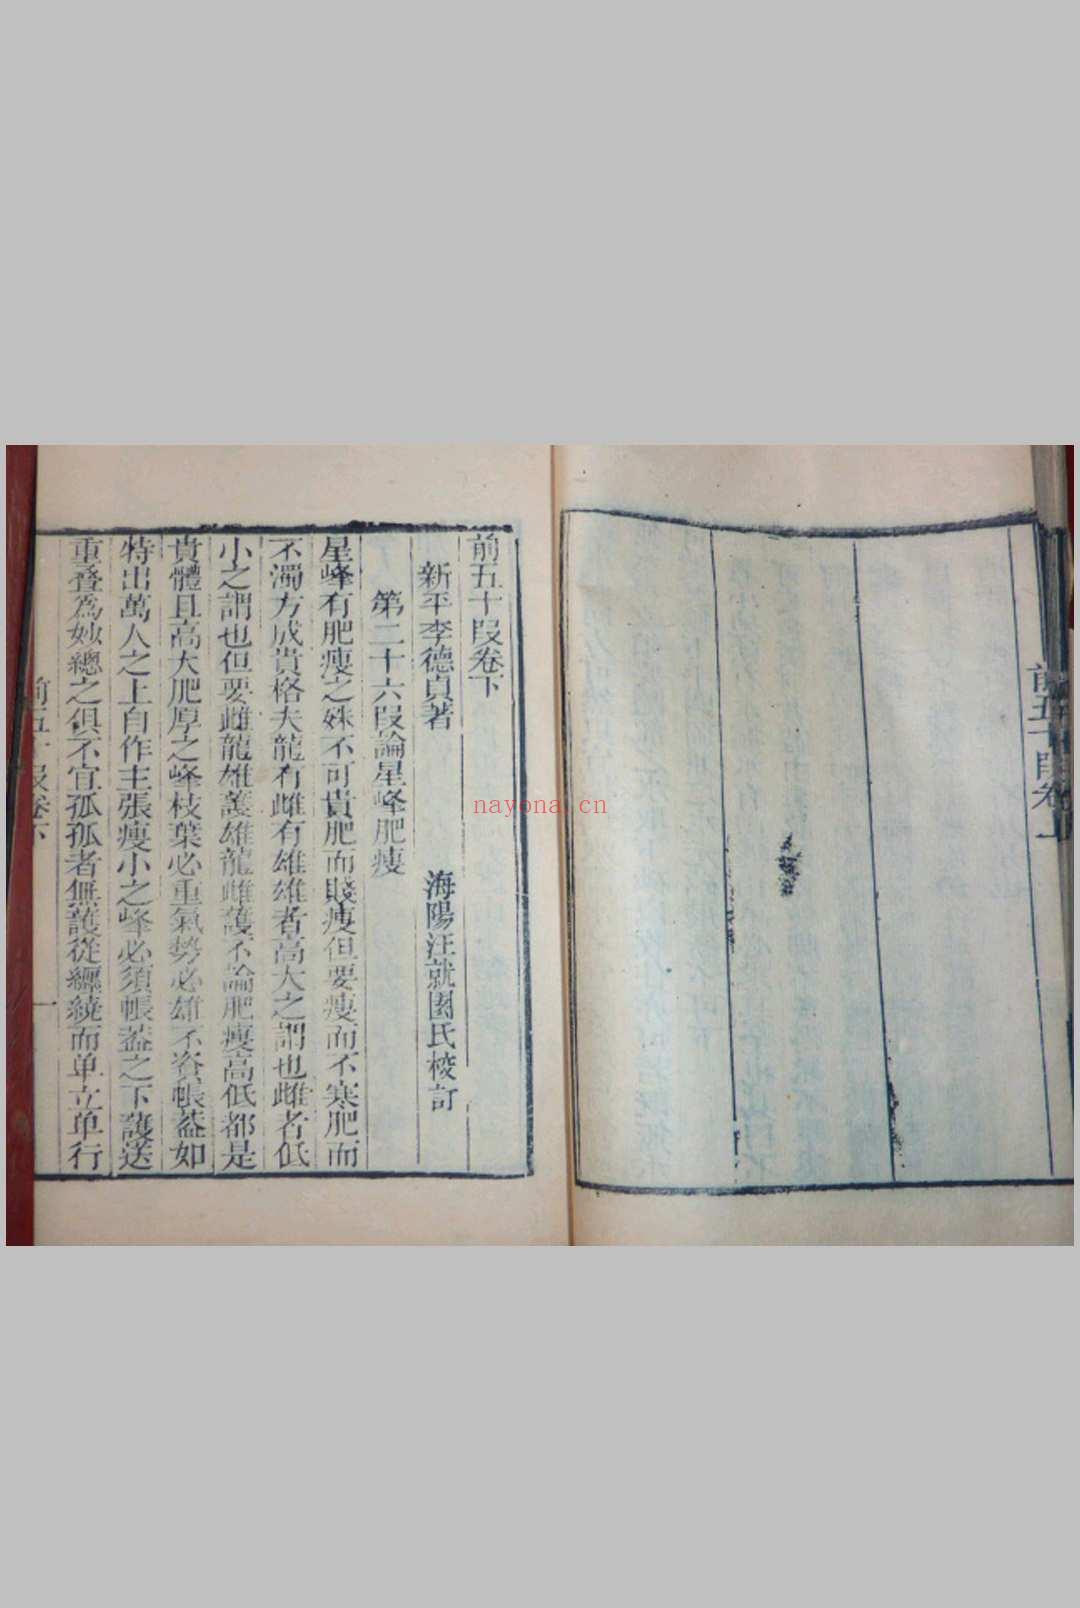 前五十段卷上
前五十段卷下
新平李德貞著 海陽汪就園氏校訂
第二十六段論星峰肥瘦
星峰有肥瘦之姝不可貴肥而賤瘦但要瘦而不寒肥而
不濁方成貴格夫龍有雌有雄雄者高大之謂也雌者低
小之謂也但要雌龍雄護雄龍雌護不論肥瘦高低都是
貴體且高大肥厚之峰枝葉必重氣勢必雄不資帳葢如
特出萬人之上自作主張瘦小之峰必須帳葢之下護送
重疊為妙總之俱不宜孤孤者無護從纒繞而单立单行
前五十段卷下 一
nayona.cn